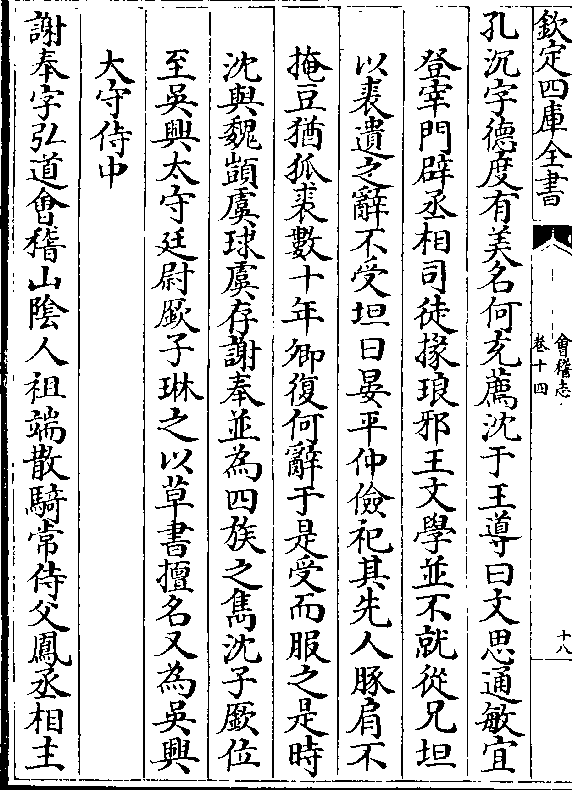 欽定四庫全書
會稽志
卷十四
十八
孔沉字德度有美名何充薦沈于王導曰文思通敏宜
登宰門辟丞相司徒掾琅邪王文學並不就從兄坦
以裘遺之辭不受坦曰晏平仲儉祀其先人豚肩不
掩豆猶狐裘數十年卿復何辭于是受而服之是時
沈與魏顗虞球虞存謝奉並為四族之雋沈子廞位
至吳興太守廷尉廞子琳之以草書擅名又為吳興
大守侍中
謝奉字弘道會稽山陰人祖端散騎常侍父鳳丞相主